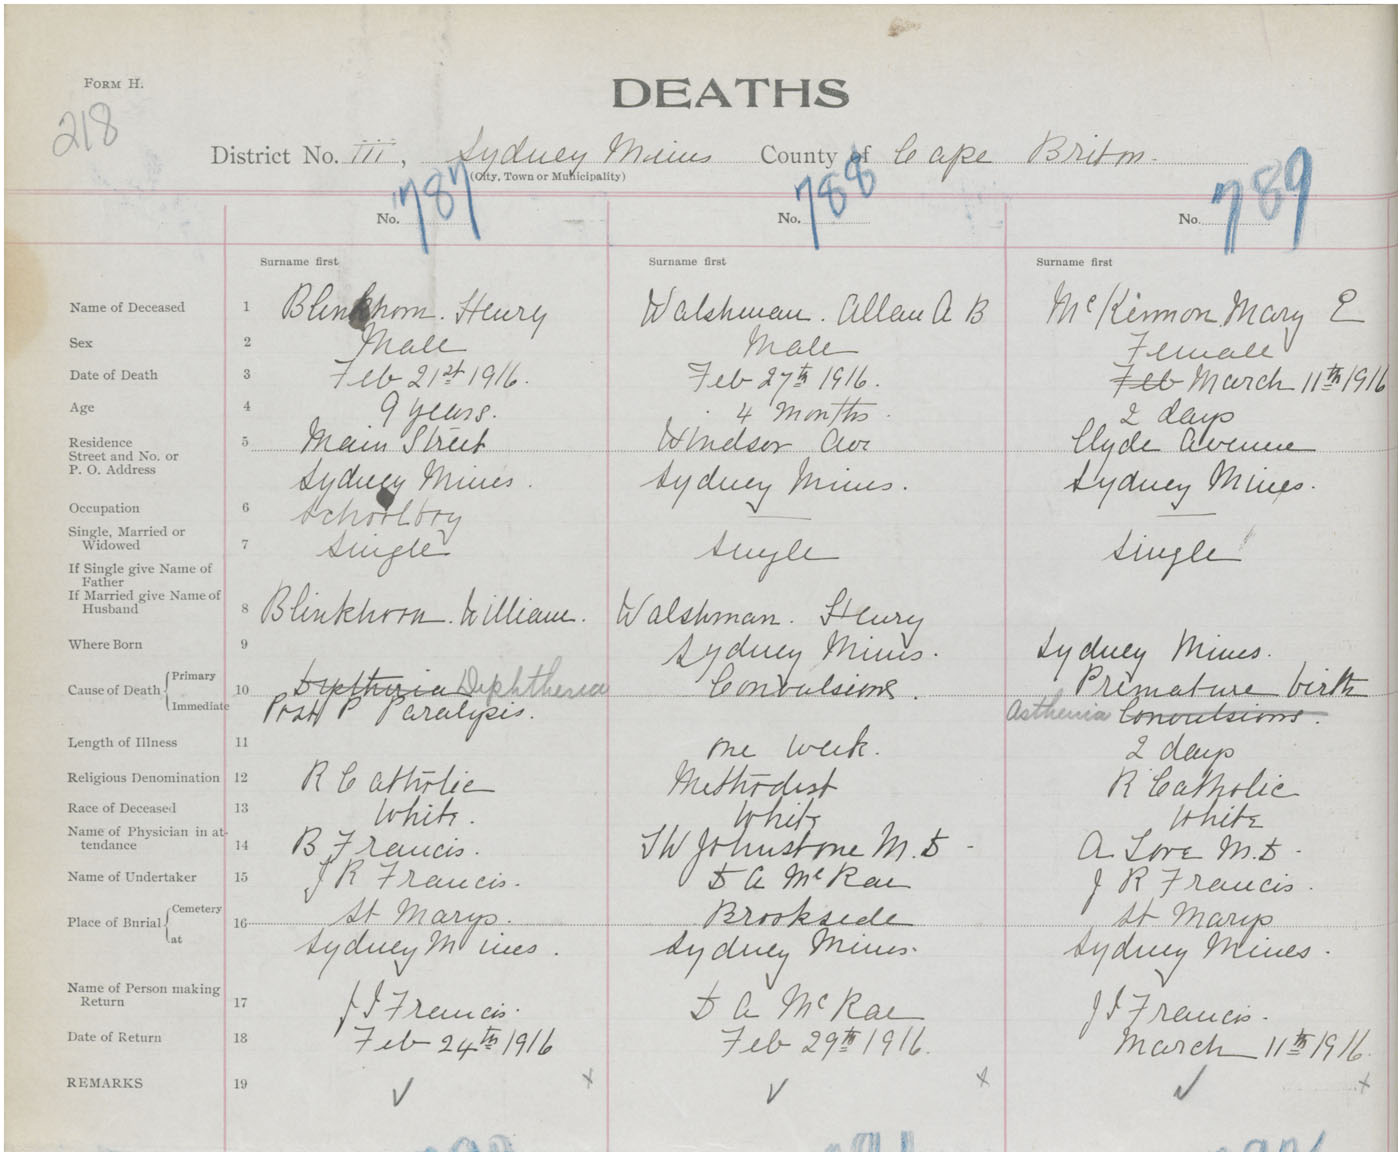 FORM H.
DEATHS
218
District No. III, Sydney Mines County of Cape Briton.
(City, Town or Municipality)
No. 787 No. 788 No. 789
Surname first Surname first Surname first
Name of Deceased 1 Blinkhorn. Henry Walshman. Allan A B McKinnon Mary E
Sex 2 Male Male Female
Date of Death 3 Feb 21st 1916. Feb 27th 1916. Feb March 11th 1916
Age 4 9 years. 4 Months. 2 days
Residence 5 Main Street Windsor Ave Clyde Avenue
Street and No. or
P. O. Address Sydney Mines. Sydney Mines. Sydney Mines.
Occupation 6 Schoolboy —— ——
Single, Married or
Widowed 7 Single Single Single
If Single give Name of
Father
If Married give Name of
Husband 8 Blinkhorn. William. Walshman. Henry
Where Born 9 Sydney Mines. Sydney Mines.
Cause of Death { Primary 10 Diptheria Diphtheria Convulsions. Premature birth
Immediate Post P Paralysis. Asthenia Convulsions.
Length of Illness 11 One Week. 2 days
Religious Denomination 12 R Catholic Methodist R Catholic
Race of Deceased 13 White. White White
Name of Physician in at-
tendance 14 B Francis. T W Johnstone M. D - A Love M. D -
Name of Undertaker 15 J R Francis. D A McRae J R Francis.
Place of Burial { Cemetery 16 St Marys. Brookside St Marys
at Sydney Mines. Sydney Mines. Sydney Mines.
Name of Person making
Return 17 J J Francis. D A McRae J J Francis.
Date of Return 18 Feb 24th 1916 Feb 29th 1916. March 11th 1916.
REMARKS 19 ✓ x ✓ x ✓ x